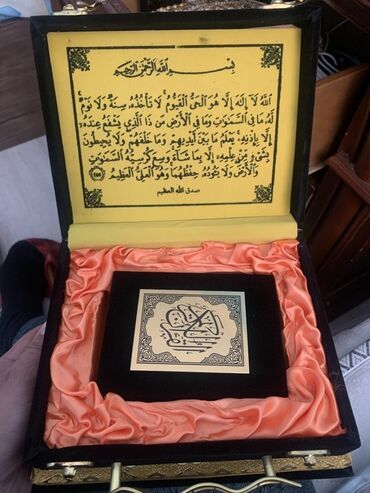 بِسْمِ اللَّهِ الرَّحْمَٰنِ الرَّحِيمِ
اللَّهُ لَا إِلَٰهَ إِلَّا هُوَ الْحَيُّ الْقَيُّومُ لَا تَأْخُذُهُ سِنَةٌ وَلَا نَوْمٌ
لَهُ مَا فِي السَّمَٰوَاتِ وَمَا فِي الْأَرْضِ مَن ذَا الَّذِي يَشْفَعُ عِندَهُ
إِلَّا بِإِذْنِهِ يَعْلَمُ مَا بَيْنَ أَيْدِيهِمْ وَمَا خَلْفَهُمْ وَلَا يُحِيطُونَ
بِشَيْءٍ مِّنْ عِلْمِهِ إِلَّا بِمَا شَاءَ وَسِعَ كُرْسِيُّهُ السَّمَٰوَاتِ
وَالْأَرْضَ وَلَا يَئُودُهُ حِفْظُهُمَا وَهُوَ الْعَلِيُّ الْعَظِيمُ ٢٥٥
صدق الله العظيم